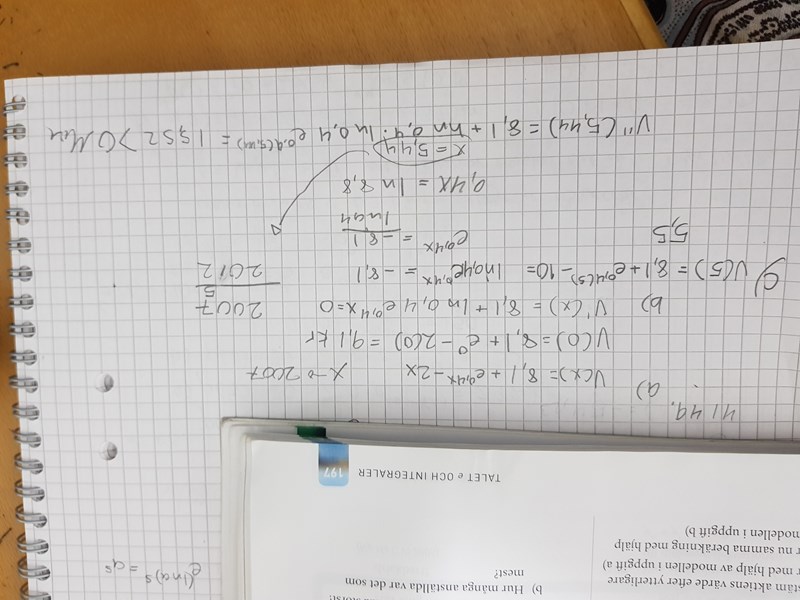 e^(ln a)^s = a^s
stäm aktiens värde efter ytterligare
r med hjälp av modellen i uppgift a)
r nu samma beräkning med hjälp
modellen i uppgift b)
b) Hur många anställda var det som
mest?
TALET e OCH INTEGRALER 197
4149.
a) V(x) = 8,1 + e^0,4x - 2x x → 2007
V(0) = 8,1 + e^0 - 2(0) = 9,1 kr
b) V'(x) = 8,1 + ln 0,4 e^0,4x = 0
2007
5
2012
c) V(5) = 8,1 + e^0,4(5) - 10 =
5,5
ln 0,4 e^0,4x = -8,1
e^0,4x = -8,1 / ln 0,4
0,4x = ln 8,8
x = 5,44
V''(5,44) = 8,1 + ln 0,4 · ln 0,4 e^0,4(5,44) = 15,52 > 0 Min